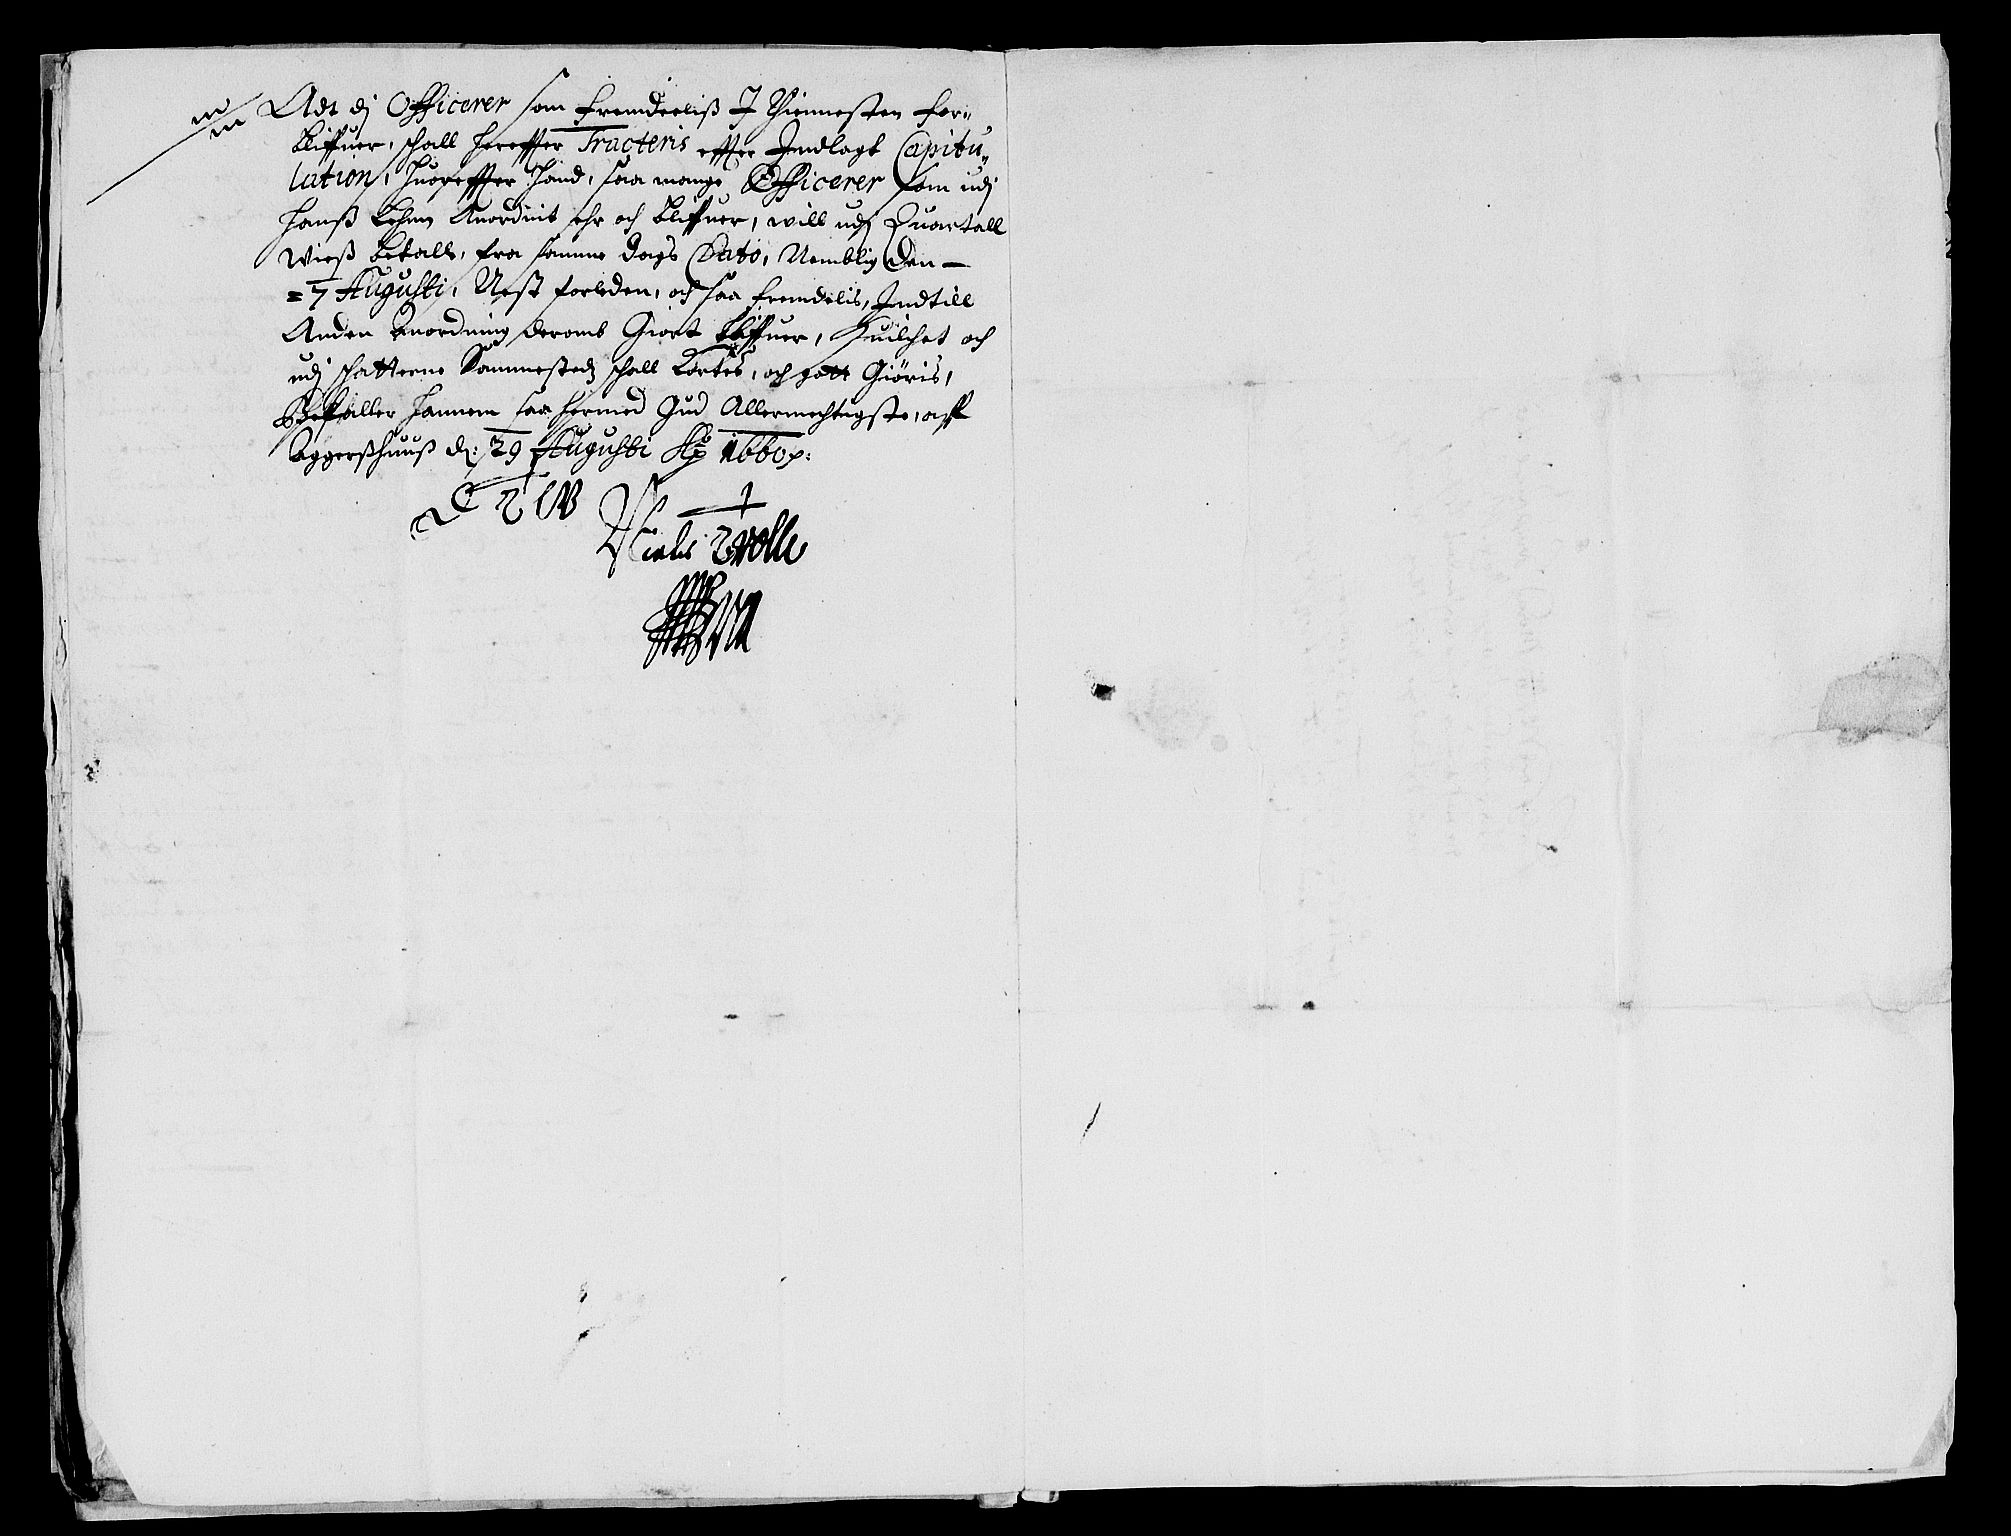 Adt dj Officerer som fremdeeliß J Thiennesten for„
bliffuer, schall herefter Tracteris effter Jndlagt Capitu„
lation, huoreffter hand, saa mange Officerer som udj
hanß Lehen Anordnit ehr och bliffuer, will udj Quartall
Wieß betalle, fra samme dags Dato, Nemblig den —
=7 Augusti, Nest forleden, och saa fremdelis, Jndtill
Anden Anordning deromb Giort bliffuer, Huilchet och
udj schatterne Sammesteds schall kortes, och gott Giöris,
Befaller hannem saa hermed Gud Allermechtigste, aff
Aggerßhuuß d: 29 Augusti Ao 1660 p:
E T W
Niels Trolle